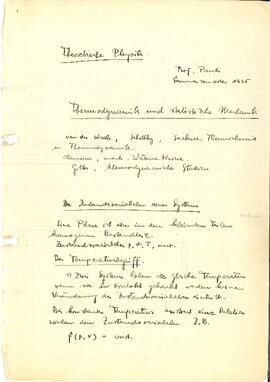 Theoretische Physik.
Prof. Pauli
Sommersemester 1935
Thermodynamik und statistische Mechanik
van der Waals, Schottky, Sackur, Thermochemie
u. Thermodynamik.
Clausius, mech. Wärmetheorie
Gibbs, thermodynamische Studien
Die Zustandsvariabeln eines Systems
Eine Phase ist eine in den kleinsten Teilen
homogenen Bestandteile.
Zustandsvariable p, v, T, usw.
Der Temperaturbegriff.
1) Zwei Systeme haben die gleiche Temperatur
wenn sie in Kontakt gebracht werden keine
Veränderung der Zustandsvariabeln eintritt.
Bei konstanter Temperatur existiert eine Relation
zwischen den Zustandsvariabeln z.B.
f(p,v) = const.